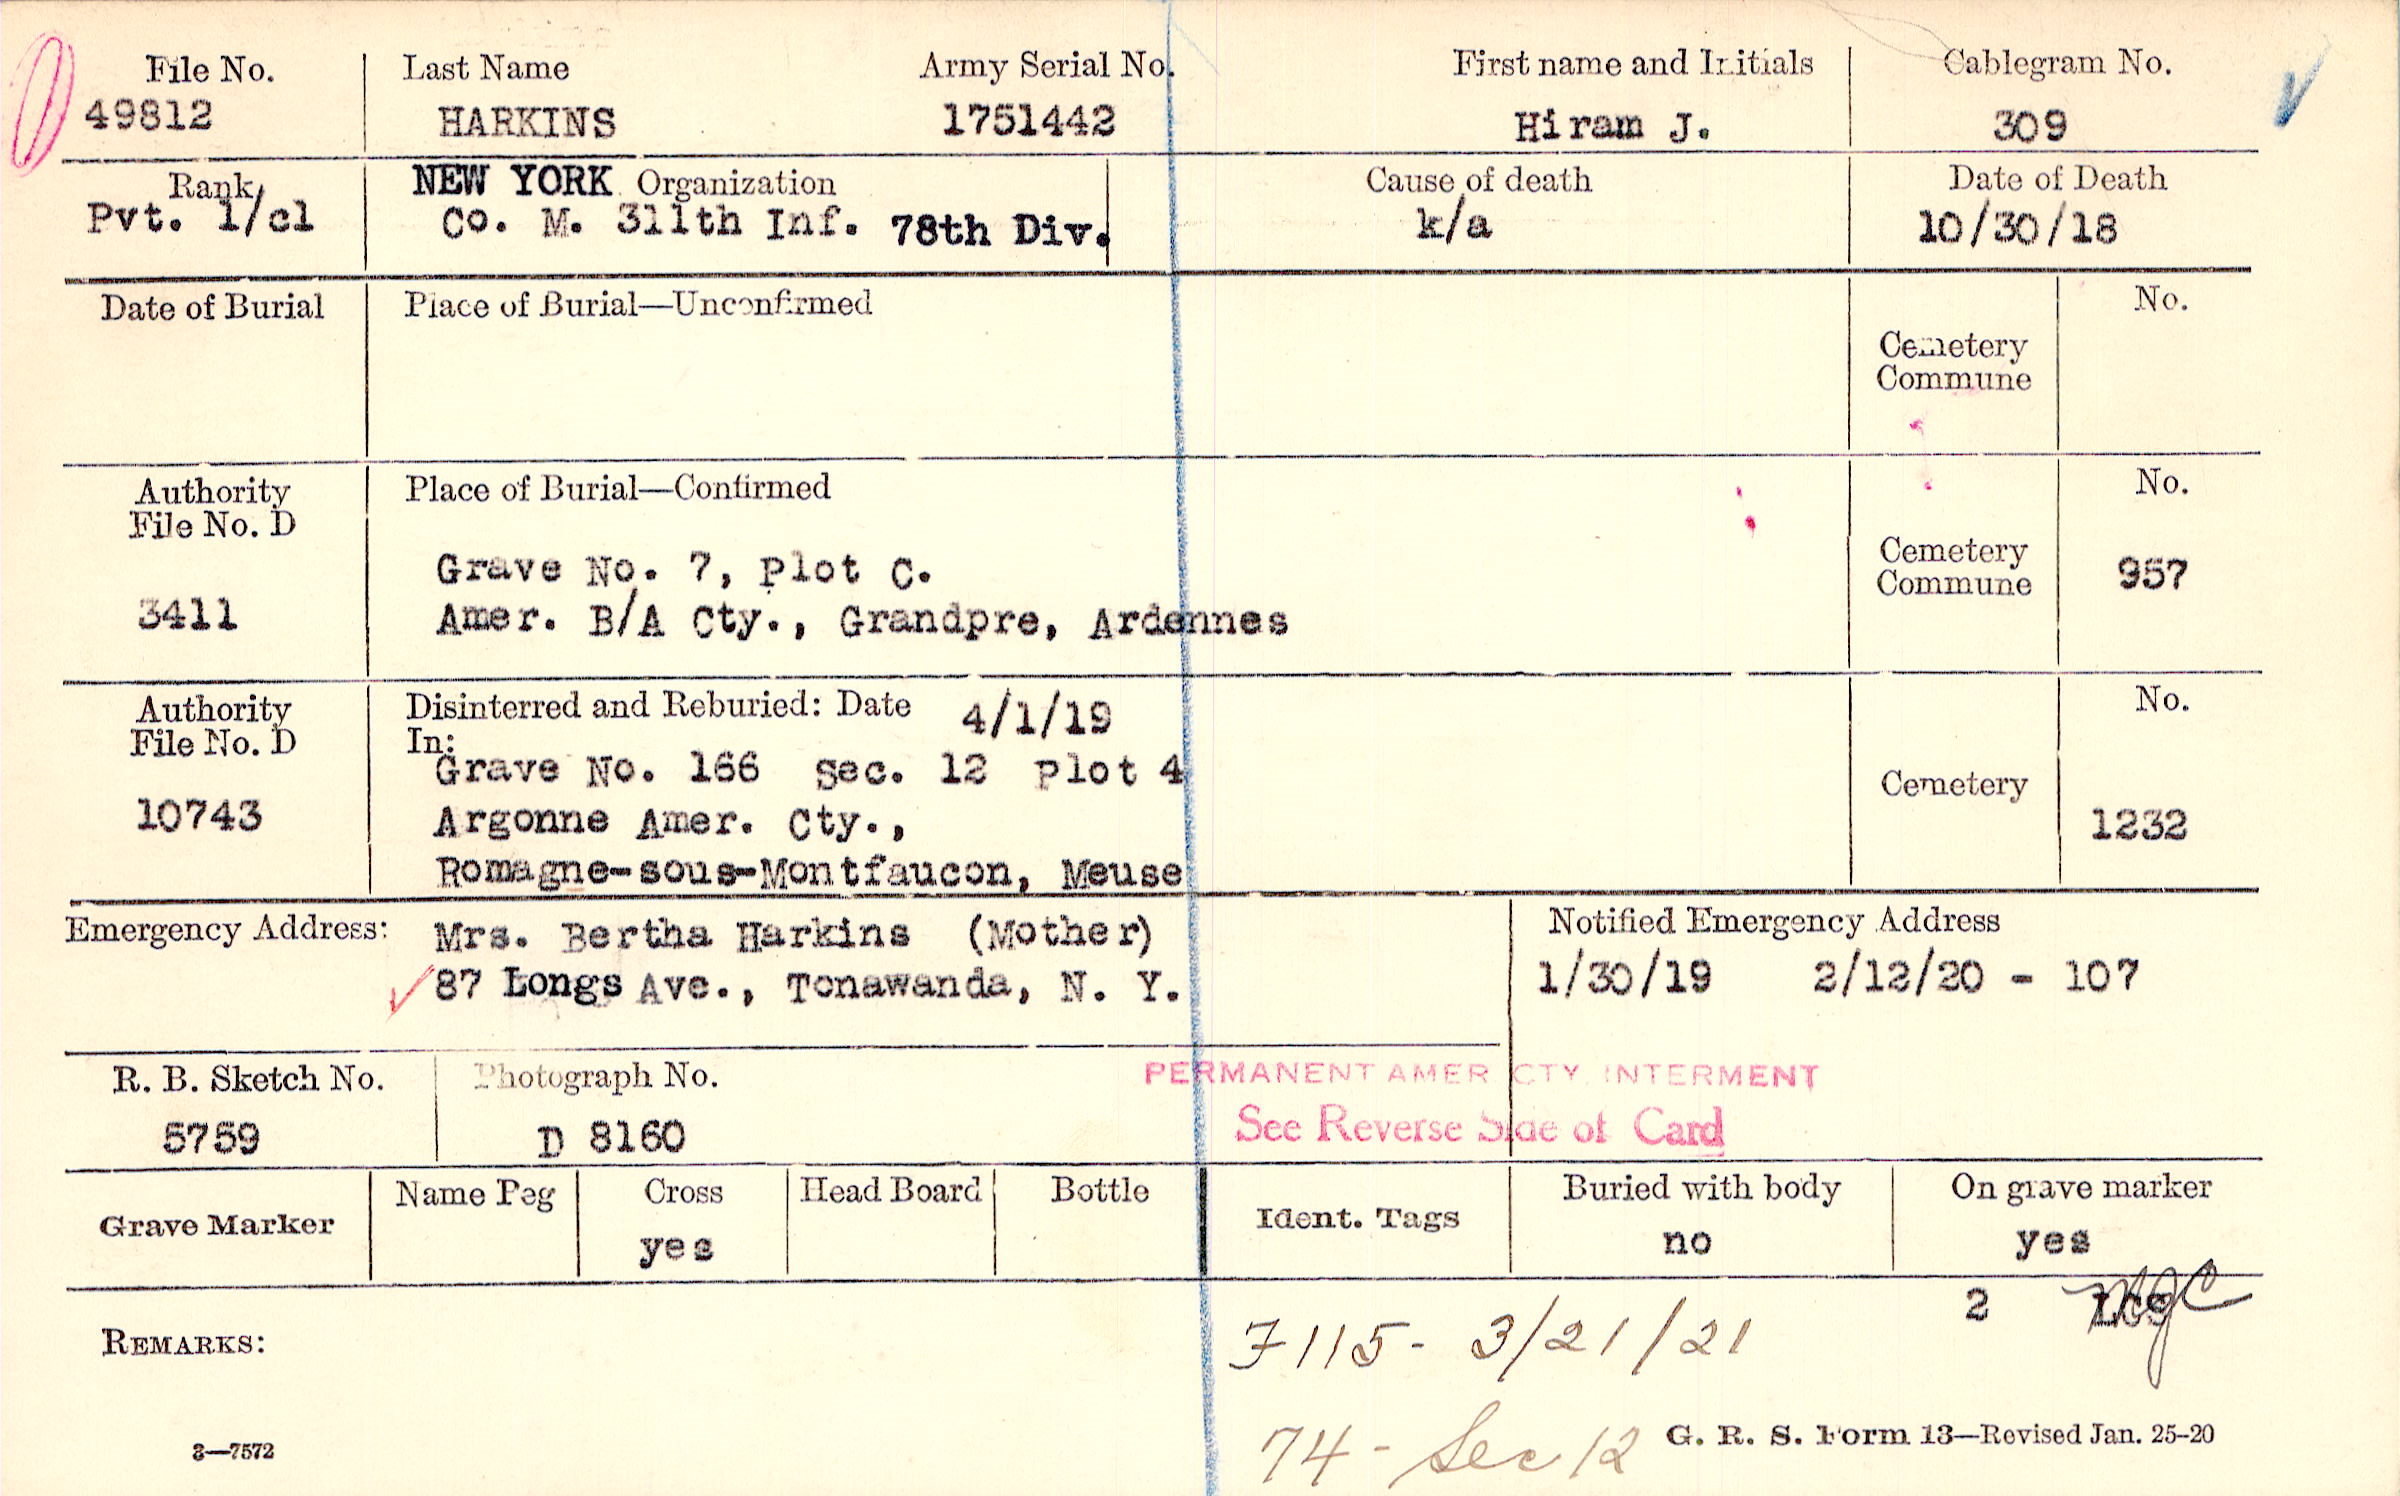 File No. Last Name Army Serial No. First name and Initials Cablegram No.
49812 HARKINS 1751442 Hiram J. 309
Rank NEW YORK Organization Cause of death Date of Death
Pvt. 1/cl Co. M. 311th Inf. 78th Div. k/a 10/30/18
Date of Burial Place of Burial—Unconfirmed No.
Cemetery
Commune
Authority Place of Burial—Confirmed No.
File No. D
Grave No. 7, Plot C. Cemetery
Commune 957
3411 Amer. B/A Cty., Grandpre, Ardennes
Authority Disinterred and Reburied: Date 4/1/19 No.
File No. D In:
Grave No. 166 Sec. 12 Plot 4
Cemetery
10743 Argonne Amer. Cty., 1232
Romagne-sous-Montfaucon, Meuse
Emergency Address: Mrs. Bertha Harkins (Mother) Notified Emergency Address
87 Longs Ave., Tonawanda, N. Y. 1/30/19 2/12/20 - 107
R. B. Sketch No. Photograph No. PERMANENT AMER CTY. INTERMENT
5759 D 8160 See Reverse Side of Card
Grave Marker Name Peg Cross Head Board Bottle Ident. Tags Buried with body On grave marker
yes no yes
2
REMARKS: F115- 3/21/21
74- Sec 12 G. R. S. Form 13—Revised Jan. 25-20
3—7572